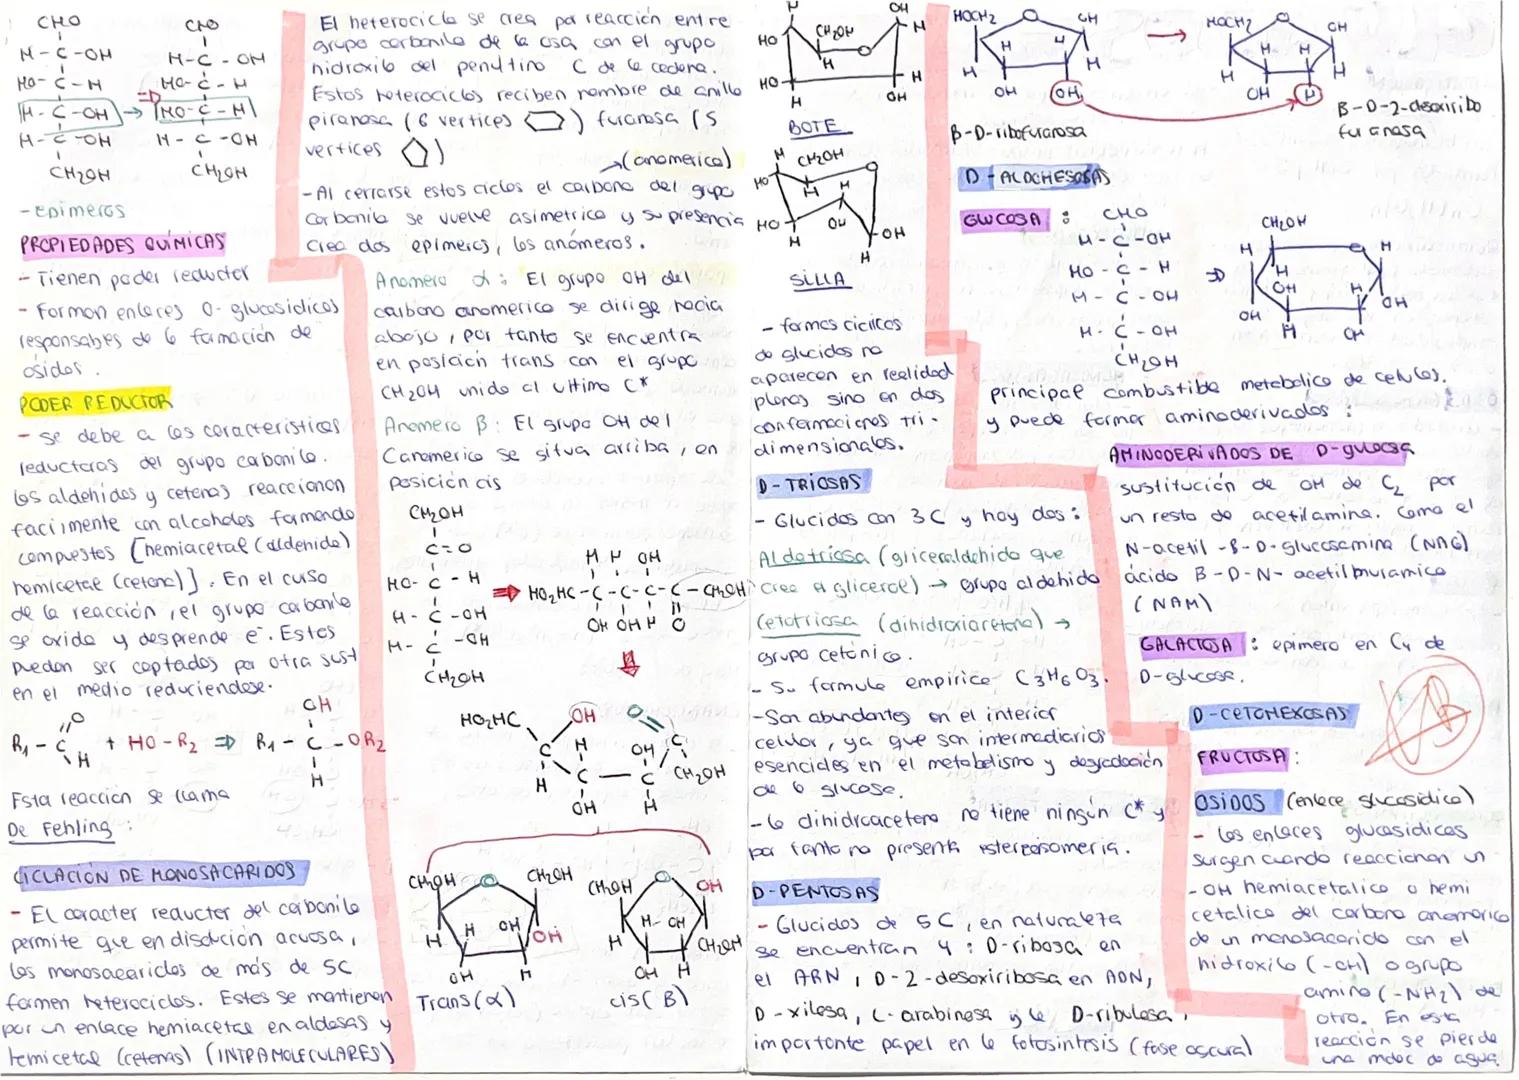 CHO
H-C-OH
HO-C-H
H-C-OH
H-C-OH
CH₂OH
CHO
H-C-OH
HO-C-H
HO-C-H
H-C-OH
CH₂OH
-Epimeros
PROPIEDADES QUÍMICAS
- Tienen poder reductor
- Forman enlaces O-glucosidicos
responsables de la formación de
ósidos.
PODER REDUCTOR
- se debe a las caracteristicas
reductoras del grupo carbonilo.
los aldehidos y cetonas reaccionan
facilmente con alcoholes formando
compuestos [hemiacetal (aldehido)
hemicetal (cetona)]. En el curso
de la reacción, el grupo carbonilo
se oxida y desprende e⁻. Estos
pueden ser captados por otra sust
en el medio reduciendose.
R₁-C
O
H
+ HO-R₂ ⇒ R₁-C-OR₂
OH
H
Esta reacción se llama
De Fehling:
CICLACIÓN DE MONOSACARIDOS
- El caracter reductor del carbonilo
permite que en disolución acuosa,
los monosacaridos de más de 5C
formen heterociclos. Estos se mantienen
por un enlace hemiacetal en aldosas y
hemicetal (cetonas) (INTRAMOLECULARES)
El heterociclo se crea por reacción entre
grupo carbonilo de la osa con el grupo
hidroxilo del penultimo C de la cadena.
Estos heterociclos reciben nombre de anillo
piranosa (6 vertices) furanosa (5
vertices)
→(anomerico)
-Al cerrarse estos ciclos el carbono del grupo
carbonilo se vuelve asimetrico y su presencia
crea dos epimeros, los anómeros.
Anomero α: El grupo OH del
carbono anomerico se dirige hacia
abajo, por tanto se encuentra
en posición trans con el grupo
CH₂OH unido al ultimo C*
Anomero β: El grupo OH del
Canomerico se situa arriba, en
posición cis
CH₂OH
C=O
HO-C-H
H-C-OH
H-C-OH
CH₂OH
⇒
H H OH
HO₂HC-C-C-C-C-CH₂OH
OH OH H O
HO₂HC
OH
O
C
H
H
C
OH
OH
C
H
C
CH₂OH
CH₂OH
O
CH₂OH
H
H
OH
OH
OH
H
Trans(α)
CH₂OH
O
OH
H
H
OH
CH₂OH
OH
H
cis(β)
H
CH₂OH
OH
H
HO
H
O
HO
H
H
OH
BOTE
H
CH₂OH
O
HO
H
H
HO
H
OH
OH
H
SILLA
- formas ciclicas
de glucidos no
aparecen en realidad
planas sino en dos
conformaciones tri-
dimensionales.
D-TRIOSAS
- Glucidos con 3C y hay dos:
Aldotriosa (gliceraldehido que
crea a glicerol) → grupo aldehido
Cetotriosa (dihidroxiacetona) →
grupo cetónico.
- Su formula empirica C₃H₆O₃.
-Son abundantes en el interior
celular, ya que son intermediarios
esenciales en el metabolismo y degradación
de la glucosa.
-la dihidroacetona no tiene ningún C* y
por tanto no presenta estereoisomeria.
D-PENTOSAS
- Glucidos de 5C, en naturaleza
se encuentran 4: D-ribosa en
el ARN, D-2-desoxiribosa en ADN,
D-xilosa, L-arabinosa y la D-ribulosa,
importante papel en la fotosintesis (fase oscura)
HOCH₂
O
OH
H
H
H
H
OH
OH
β-D-ribofuranosa
→
HOCH₂
O
OH
H
H
H
H
OH
H
β-D-2-desoxiribo
furanosa
D-ALDOHESOSAS
GLUCOSA:
CHO
H-C-OH
HO-C-H
H-C-OH
H-C-OH
CH₂OH
⇒
CH₂OH
H
O
H
H
OH
H
OH
OH
H
OH
principal combustible metabolico de celulas.
y puede formar aminoderivados:
AMINODERIVADOS DE D-glucosa
sustitución de OH de C₂ por
un resto de acetilamina. Como el
N-acetil-β-D-glucosamina (NAG)
ácido β-D-N-acetilmuramico
(NAM)
GALACTOSA: epimero en C₄ de
D-glucosa.
D-CETOHEXOSAS
FRUCTOSA:
OSIDOS (enlace glucosidico)
- los enlaces glucosidicos
surgen cuando reaccionan un
-OH hemiacetalico o hemi
cetalico del carbono anomerico
de un monosacarido con el
hidroxilo (-OH) o grupo
amino (-NH₂) de
otro. En esta
reacción se pierde
una molec de agua.